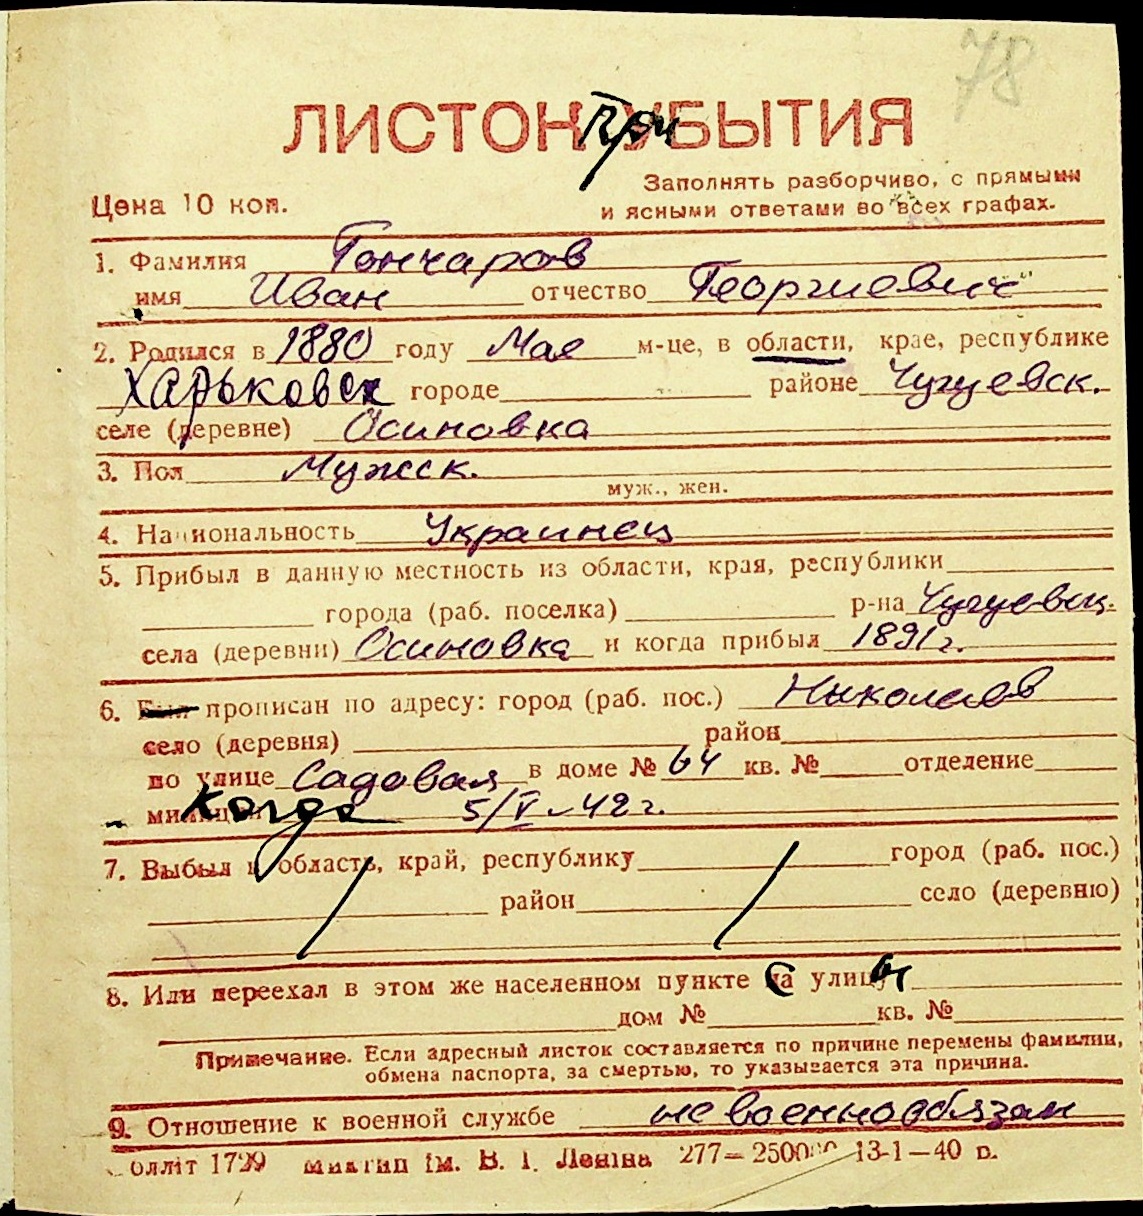 78
ЛИСТОК При УБЫТИЯ
Цена 10 коп.
Заполнять разборчиво, с прямыми
и ясными ответами во всех графах.
1. Фамилия Гончаров
имя Иван отчество Георгиевич
2. Родился в 1880 году Мае м-це, в области, крае, республике
Харьковск городе районе Чугуевск.
селе (деревне) Осиновка
3. Пол Мужск.
муж., жен.
4. Национальность Украинец
5. Прибыл в данную местность из области, края, республики
города (раб. поселка) р-на Чугуевск.
села (деревни) Осиновка и когда прибыл 1891 г.
6. Был прописан по адресу: город (раб. пос.) Николаев
село (деревня) район
по улице Садовая в доме № 64 кв. № отделение
милиции Когда 5/V-42 г.
7. Выбыл в область, край, республику город (раб. пос.)
район село (деревню)
8. Или переехал в этом же населенном пункте с улицы
дом № кв. №
Примечание. Если адресный листок составляется по причине перемены фамилии,
обмена паспорта, за смертью, то указывается эта причина.
9. Отношение к военной службе не военнообязан
ім. В. І. Леніна 277— 13-1—40 р.